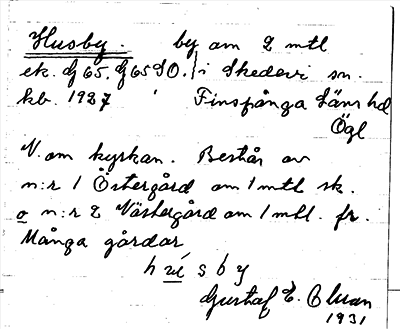 Husby. by om 2 mtl
ek. G 65. G 65 SO. } i Skedevi sn.
kb. 1927 Finspånga Läns hd
Ögl
N. om kyrkan. Består av
n:r 1 Östergård om 1 mtl sk.
o n:r 2 Västergård om 1 mtl. fr.
Många gårdar
húsby
Gustaf E. Olman
1931